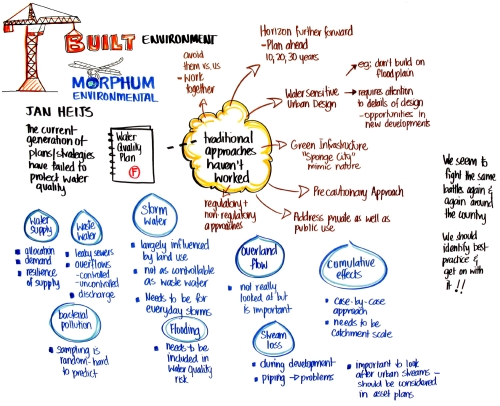 BUILT ENVIRONMENT
MORPHUM
ENVIRONMENTAL
JAN HEIJS
The current
generation of
plans/strategies
have failed to
protect water
quality
Water
Quality
Plan
F
traditional
approaches
haven't
worked
avoid
them vs. us
- work
together
Horizon further forward
- Plan ahead
10, 20, 30 years
Water sensitive
Urban Design
eg: don't build on
floodplain
requires attention
to details of design
- opportunities in
new developments
Green Infrastructure
"Sponge City"
mimic nature
Precautionary Approach
Address private as well as
public use
regulatory +
non-regulatory
approaches
We seem to
fight the same
battles again &
again around
the country
We should
identify best
practice &
get on with
it!!
Water
supply
allocation
demand
resilience
of supply
Waste
water
leaky sewers
overflows
- controlled
- uncontrolled
discharge
Storm
water
largely influenced
by land use
not as controllable
as waste water
Needs to be for
everyday storms
Overland
flow
not really
looked at but
is important
Cumulative
effects
case-by-case
approach
needs to be
catchment scale
bacterial
pollution
sampling is
random - hard
to predict
Flooding
needs to be
included in
Water Quality
risk
Stream
loss
during development
piping → problems
important to look
after urban streams -
should be considered
in asset plans